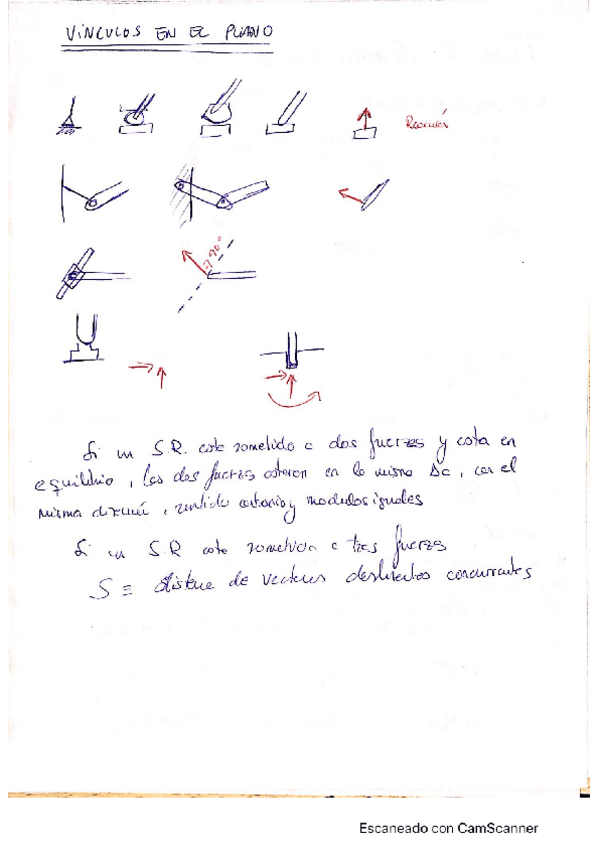 VINCULOS EN EL PLANO
Reacción
90°
Si un S.R. este sometido a dos fuerzas y esta en
equilibrio, las dos fuerzas estaran en la misma , con el
misma dirección, sentido contrario y modulos iguales
Si un S.R este sometido a tres fuerzas
S ≡ sistema de vectores deslizantes concurrentes
Escaneado con CamScanner